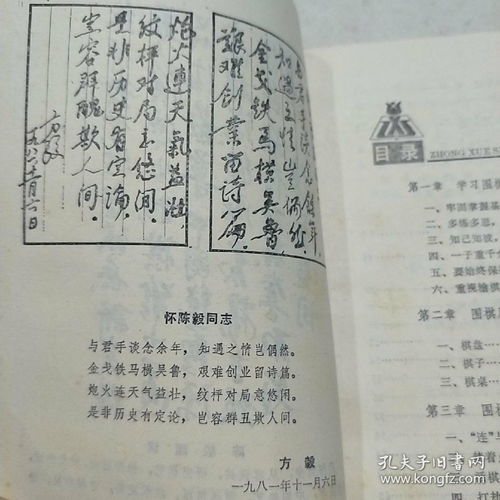 与君手谈念馀年
知遇之情岂偶然
金戈铁马横吴鲁
艰难创业留诗篇
炮火連天气益壮
纹枰对局意悠闲
是非历史有定论
岂容群醜欺人间
方毅
一九八一年十一月六日
怀陈毅同志
与君手谈念余年，知遇之情岂偶然。
金戈铁马横吴鲁，艰难创业留诗篇。
炮火连天气益壮，纹枰对局意悠闲。
是非历史有定论，岂容群丑欺人间。
方毅
一九八一年十一月六日
目录
ZHONG XUE S
第一章 学习围棋
一、牢固掌握基
二、多练多思，
三、知己知彼，
四、一子重千
五、要始终保
六、重视输棋
第二章 围棋
一、棋盘…
二、棋子…
三、棋桌…
第三章 围棋
一、“连”与
孔夫子旧书网